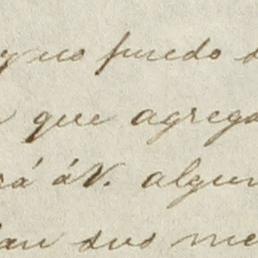 y no puedo
que agrega
rá á V. algun
an sus me